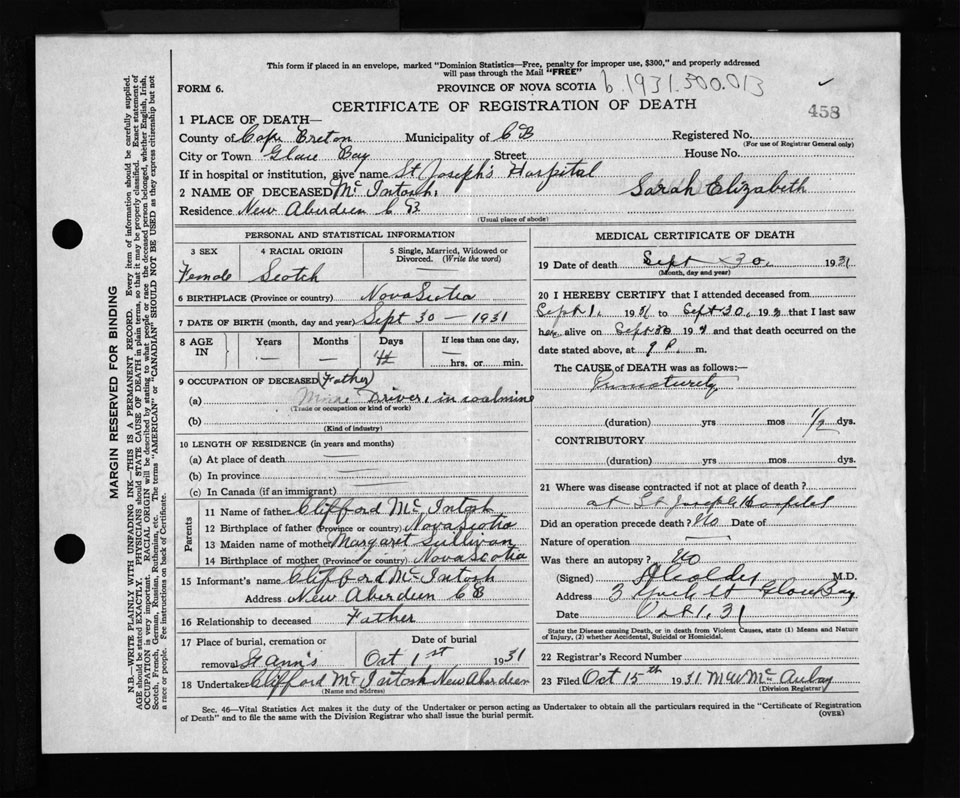 This form if placed in an envelope, marked "Dominion Statistics—Free, penalty for improper use, $300," and properly addressed
will pass through the Mail "FREE"
FORM 6. PROVINCE OF NOVA SCOTIA b.1931.500.013
CERTIFICATE OF REGISTRATION OF DEATH 458
1 PLACE OF DEATH—
County of Cape Breton Municipality of C B Registered No.
(For use of Registrar General only)
City or Town Glace Bay Street House No.
If in hospital or institution, give name St Joseph's Hospital
2 NAME OF DECEASED Mc Intosh, Sarah Elizabeth
Residence New Aberdeen C B
(Usual place of abode)
PERSONAL AND STATISTICAL INFORMATION
3 SEX 4 RACIAL ORIGIN 5 Single, Married, Widowed or
Divorced. (Write the word)
Female Scotch
6 BIRTHPLACE (Province or country) Nova Scotia
7 DATE OF BIRTH (month, day and year) Sept 30 — 1931
8 AGE IN Years Months Days If less than one day,
— — hrs. or min.
9 OCCUPATION OF DECEASED (Father)
(a) Driver, in coalmine
(Trade or occupation or kind of work)
(b)
(Kind of industry)
10 LENGTH OF RESIDENCE (in years and months)
(a) At place of death
(b) In province
(c) In Canada (if an immigrant)
Parents
11 Name of father Clifford Mc Intosh
12 Birthplace of father (Province or country) Nova Scotia
13 Maiden name of mother Margaret Sullivan
14 Birthplace of mother (Province or country) Nova Scotia
15 Informant's name Clifford Mc Intosh
Address New Aberdeen C B
16 Relationship to deceased Father
17 Place of burial, cremation or Date of burial
removal St Ann's Oct 1st 1931
18 Undertaker Clifford Mc Intosh New Aberdeen
(Name and address)
MEDICAL CERTIFICATE OF DEATH
19 Date of death Sept 30, 1931
(Month, day and year)
20 I HEREBY CERTIFY that I attended deceased from
Sept 1, 1931 to Sept 30, 193 that I last saw
her alive on Sept 30 193 and that death occurred on
the date stated above, at 9 P. m.
The CAUSE of DEATH was as follows:—
Prematurely
(duration) yrs mos 1/2 dys.
CONTRIBUTORY
(duration) yrs mos dys.
21 Where was disease contracted if not at place of death?
at St Joseph Hospital
Did an operation precede death? No Date of
Nature of operation
Was there an autopsy? No
(Signed) M.D.
Address 3 Glace Bay
Date Oct 1, 31
State the Disease causing Death, or in death from Violent Causes, state (1) Means and Nature
of Injury, (2) whether Accidental, Suicidal or Homicidal.
22 Registrar's Record Number
23 Filed Oct 15th 1931
(Division Registrar)
Sec. 46—Vital Statistics Act makes it the duty of the Undertaker or person acting as Undertaker to obtain all the particulars required in the "Certificate of Registration
of Death" and to file the same with the Division Registrar who shall issue the burial permit. (OVER)
MARGIN RESERVED FOR BINDING
N.B.—WRITE PLAINLY WITH UNFADING INK—THIS IS A PERMANENT RECORD. Every item of information should be carefully supplied.
AGE should be stated EXACTLY. PHYSICIANS should STATE CAUSE OF DEATH in plain terms, so that it may be properly classified. Exact statement of
OCCUPATION is very important. RACIAL ORIGIN will be described by stating to what people or race the deceased person belonged, whether English, Irish,
Scotch, French, German, Russian, Ruthenian, etc. The terms "AMERICAN" or "CANADIAN" SHOULD NOT BE USED as they express citizenship but not
a race or people. Fee instructions on back of Certificate.